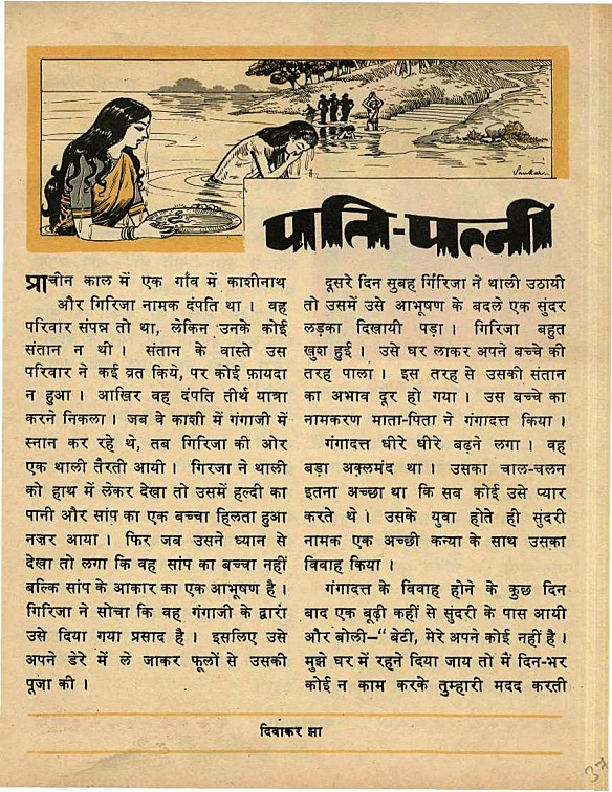 Sankar...
पति-पत्नी
प्राचीन काल में एक गाँव में काशीनाथ
और गिरिजा नामक दंपति था । वह
परिवार संपन्न तो था, लेकिन उनके कोई
संतान न थी । संतान के वास्ते उस
परिवार ने कई व्रत किये, पर कोई फ़ायदा
न हुआ । आखिर वह दंपति तीर्थ यात्रा
करने निकला । जब वे काशी में गंगाजी में
स्नान कर रहे थे, तब गिरिजा की ओर
एक थाली तैरती आयी । गिरजा ने थाली
को हाथ में लेकर देखा तो उसमें हल्दी का
पानी और सांप का एक बच्चा हिलता हुआ
नज़र आया । फिर जब उसने ध्यान से
देखा तो लगा कि वह सांप का बच्चा नहीं
बल्कि सांप के आकार का एक आभूषण है ।
गिरिजा ने सोचा कि वह गंगाजी के द्वारा
उसे दिया गया प्रसाद है । इसलिए उसे
अपने डेरे में ले जाकर फूलों से उसकी
पूजा की ।
दूसरे दिन सुबह गिरिजा ने थाली उठायी
तो उसमें उसे आभूषण के बदले एक सुंदर
लड़का दिखायी पड़ा । गिरिजा बहुत
खुश हुई । उसे घर लाकर अपने बच्चे की
तरह पाला । इस तरह से उसकी संतान
का अभाव दूर हो गया । उस बच्चे का
नामकरण माता-पिता ने गंगादत्त किया ।
गंगादत्त धीरे धीरे बढ़ने लगा । वह
बड़ा अक़्लमंद था । उसका चाल-चलन
इतना अच्छा था कि सब कोई उसे प्यार
करते थे । उसके युवा होते ही सुंदरी
नामक एक अच्छी कन्या के साथ उसका
विवाह किया ।
गंगादत्त के विवाह होने के कुछ दिन
बाद एक बूढ़ी कहीं से सुंदरी के पास आयी
और बोली–“बेटी, मेरे अपने कोई नहीं है ।
मुझे घर में रहने दिया जाय तो मैं दिन-भर
कोई न काम करके तुम्हारी मदद करती
दिवाकर झा
37